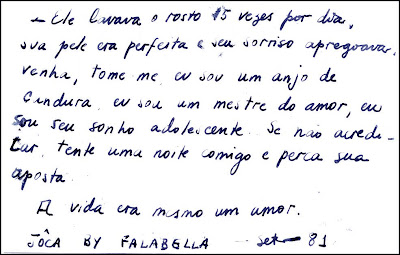 - Ele lavava o rosto 15 vezes por dia,
sua pele era perfeita e seu sorriso apregoava:
venha, tome-me, eu sou um anjo de
candura, eu sou um mestre do amor, eu
sou seu sonho adolescente. Se não acredi-
tar, tente uma noite comigo e perca sua
aposta.
A vida era mesmo um amor.
JÔCA BY FALABELLA set - 81